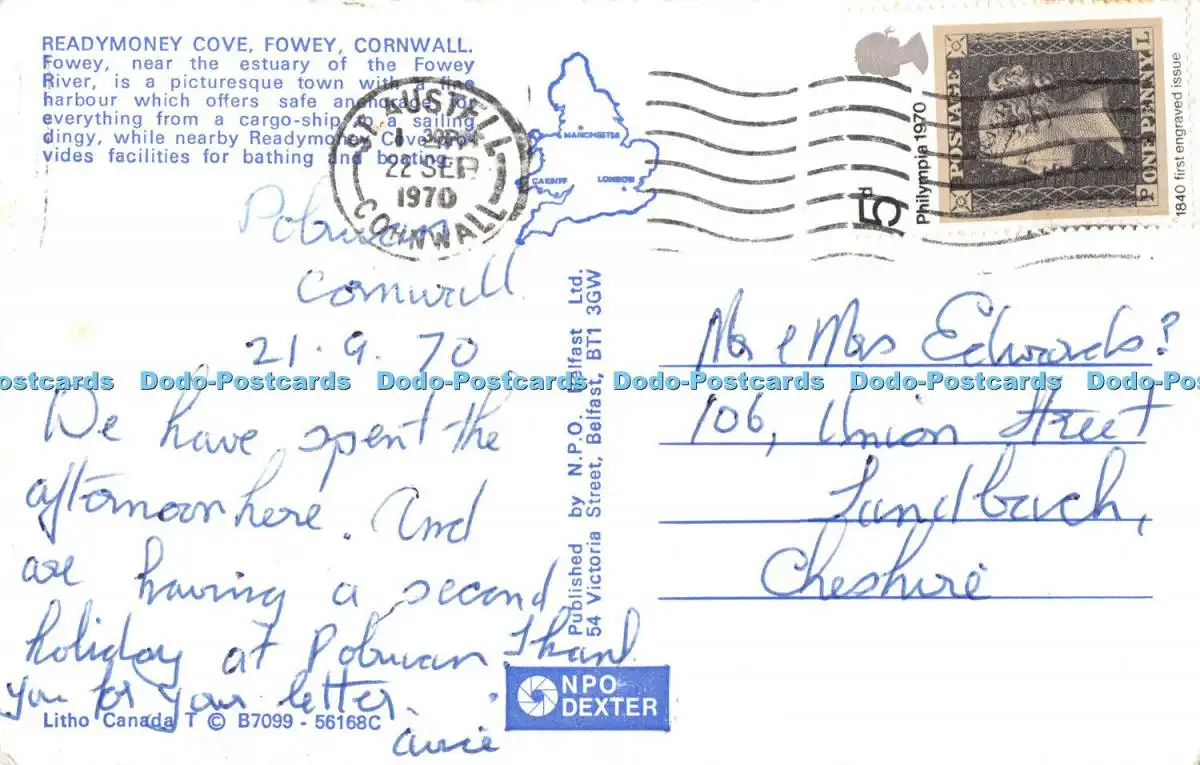 READYMONEY COVE, FOWEY, CORNWALL.
Fowey, near the estuary of the Fowey
River, is a picturesque town with a fine
harbour which offers safe anchorage for
everything from a cargo-ship to a sailing
dingy, while nearby Readymoney Cove pro-
vides facilities for bathing and boating.
ST. AUSTELL
22 SEP
1970
CORNWALL
MANCHESTER
CARDIFF LONDON
5d
Philympia 1970
POSTAGE
ONE PENNY
P L
1840 first engraved issue
Polruan
Cornwall.
21.9.70
We have spent the
afternoon here. And
are having a second
holiday at Polruan Thank
you for your letter.
Published by N.P.O. Belfast Ltd.
54 Victoria Street, Belfast, BT1 3GW
Mr & Mrs Edwards?
106, Union Street
Sandbach,
Cheshire
NPO
DEXTER
Litho Canada T © B7099 - 56168C
Dodo-Postcards Dodo-Postcards Dodo-Postcards Dodo-Postcards Dodo-Postcards